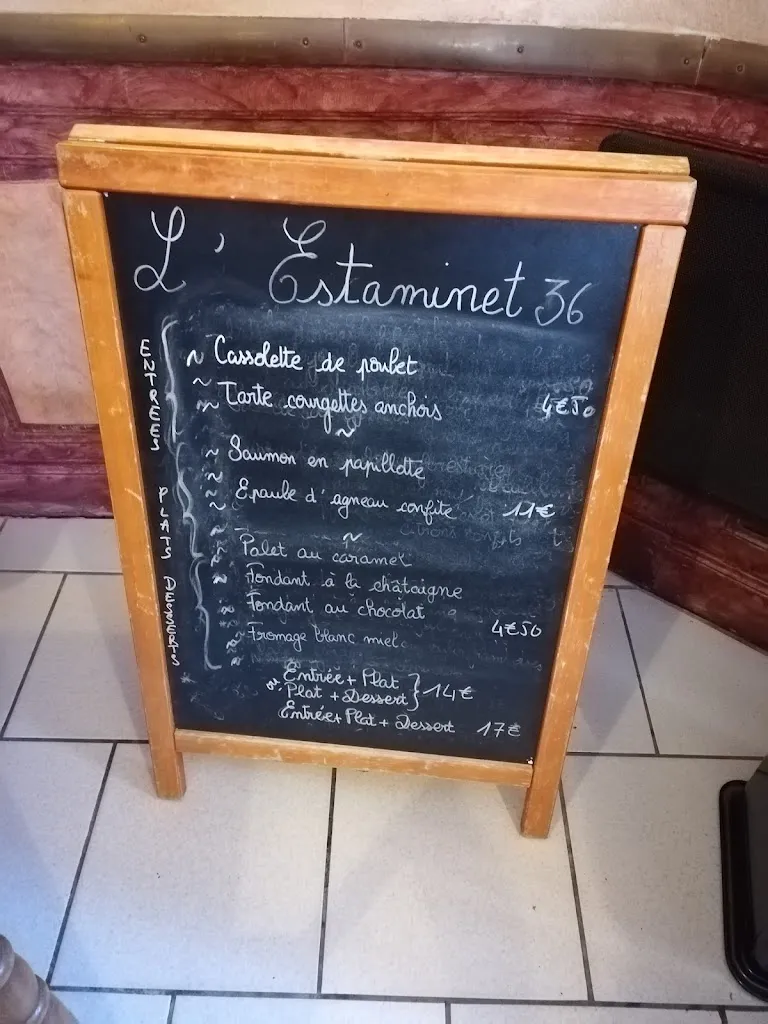 L'Estaminet 36
ENTREES
~ Cassolette de poulet
~ Tarte courgettes anchois 4€50
~
PLATS
~ Saumon en papillotte
~ Epaule d'agneau confite 11€
~
DESSERTS
~ Palet au caramel
~ Fondant à la châtaigne
~ Fondant au chocolat
4€50
~ Fromage blanc miel
Entrée + Plat
ou Plat + Dessert } 14€
Entrée + Plat + Dessert 17€